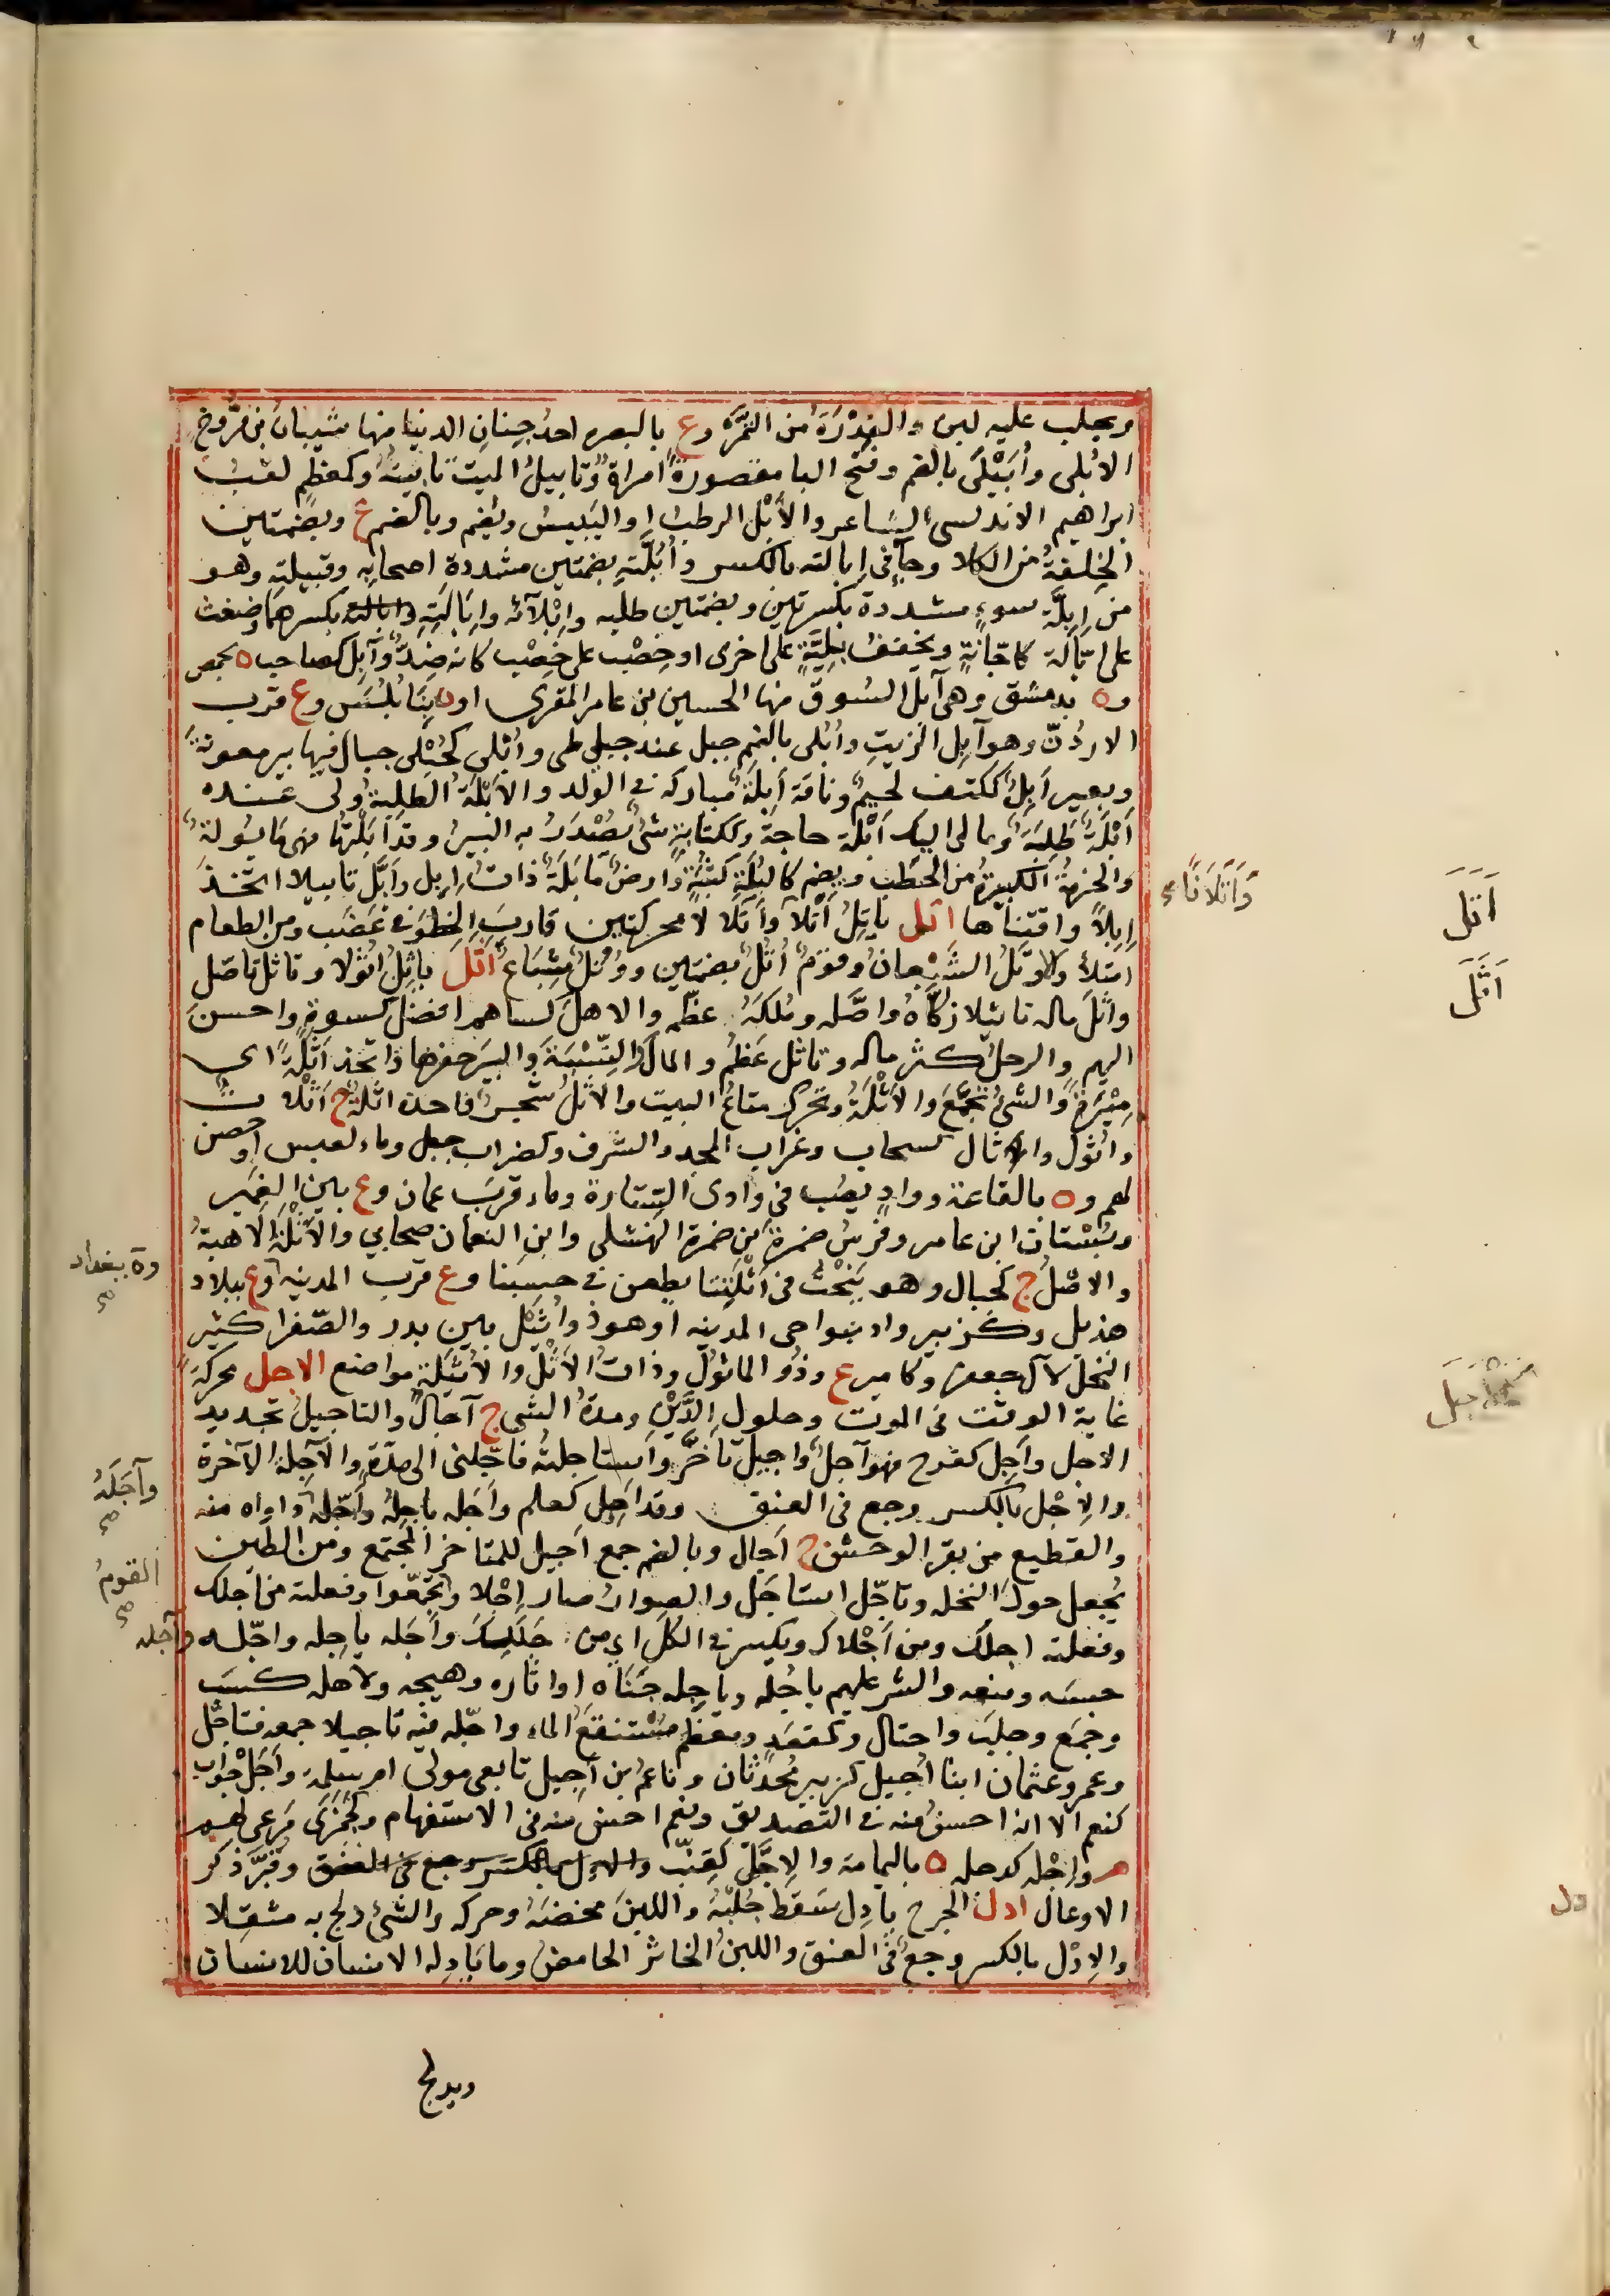 ويحلب عليه لبن والفِدْرَةُ من التمرَة وع بالبصره احدُ جِنانِ الدنيا منها شيبانُ بن فَرُّوخٍ
الابُلى وأُبَيْلَى بالضم وفتح البا مقصورةً امراةٌ وتابيلُ الميت تابينهُ وكمعظمٍ لقبُ
ابراهيم الاندلسى الشاعر والأَبْل الرطب او اليَبيسُ ويُضم وبالضم ع وبضمتين
الخِلفةُ من الكلا وجآفى اِبالته بالكسر واُبُلَّتِهِ بضمتين مشددة اصحابِهِ وقبيلتِهِ وهو
من اِبِلَّةِ سوءٍ مشددة بكسرتين وبضمتين طلبه واِبْلآته واِبَالَتِهِ بكسرهما وضغث
على ابّالة كاجّانةٍ ويخففُ بليَّةٍ على اخرى او خِصْب على خِصْب كانه ضِدٌّ وآبِل كصاحب ه بحمص
و ه بدمشق وهى آبل السُوق منها الحسين بن عامر المقرى او ه بنَابُلُسَ وع قرب
الاردُنّ وهو آبِل الزيتِ واُبلى بالضم جبل عند جبلى طى واُبْلى كحُبْلى جبال فيها بير معونةَ
وبعير اَبِلٌ ككتف لحيمٌ وناقة اَبِلَةٌ مباركه فى الولد والاَبْلَةُ الطَلِبةُ ولى عنده
اَبْلَةٌ طَلِبَةٌ وما لى اليك اَبْلَة حاجةَ وككتابةٍ شىٌ يُصْدَرُ به البير وقد اَبَلْتُها فهى مَابُولةٌ
والحزمةُ الكبيرةُ من الحَطَب ويضم كالبُلَةِ كثُبَةٍ وارضٌ مَابَلَةٌ ذاتُ اِبِل واَبَّلَ تابيلا اتخذَ
اِبِلاً واقتناها اتل ياتِلُ اَتْلاً واَتَلا لا محركتين قاربَ الخَطوَ فى غَضَب ومن الطعام
امتلأ والاوتَلُ الشَبْعانُ وقومٌ اُتُلٌ بضمتين ووُتُلٌ شِبَاع اَثَلَ ياثِلُ اُثُولا وتاثل تاصّل
واثّلَ ماله تاثيلا زكّاهُ واصَّله ومُلكَهُ عظّمه والاهلَ كساهم افضلَ كسوةٍ واحسنَ
اليهم والرجلُ كثر ماله وتاثل عَظُم والمالَ اكتَسَبَهُ والبيرَ حفرها واتخذ اَثْلَةً اى
مِيْرَةً والشىُ تجمَّعَ والاَثْلَةُ وتحرك متاعُ البيت والاَثْلُ شجر واحدة اثلةٌ ج اَثَلاتٌ
واثُول والاثال كسحاب وغراب المجد والشرف وكغراب جبل وماء لعبس او حصن
لهم و ه بالقاعة وواد يصُب فى وادى السِتارة وماء قربَ عمان وع بين الغمَير
وبُسْتان ابن عامر وفرسُ ضمرةَ بن ضمرة النهشلى وابن النعمان صحابي والاَثْلَةُ الاهبةُ
والاصْلُ ج كجبال وهو يَنحتُ فى اَثْلَتِنا يطعن فى حسبنا وع قرب المدينه وع ببلاد
هذيل وكزبير واد بنواحى المدينه او هو ذو اُثَيْل بين بدر والصّفرا كثير
النخل لآل جعفر وكامير ع وذُو الماثول وذاتُ الاَثْلِ والاُثَيْلة مواضع الاجل محركةً
غاية الوقت فى الموت وحلول الدَّيْنِ ومدةُ الشى ج آجالٌ والتاجيلُ تحديد
الاجل واَجِل كفرح فهو آجِلٌ واجيلٌ تاخر واستاجلتُه فاجّلنى الى مدّةٍ والآجلة الآخرة
والاِجْل بالكسر وجع فى العنق وقد اَجِل كعلم واَجَله ياجِلهُ واَجّلهُ داواه منه
والقطيع من بقر الوحش ج آجال وبالضم جمع اَجيل للمتاخر المجتمع ومن الطين
يُجعل حول النخله وتاجّل استاجل والصِوارُ صار اِجْلا وتجمّعوا وفعلته من اجلك
وفعلته اجلك ومن اَجْلاك ويكسر فى الكُلِ اى من جَلَلِكَ واَجَله ياجِله واجّله
حبسه ومنعه والشر عليهم ياجُله وياجِله جَنَاه او اثاره وهيجه ولاهله كسَبَ
وجَمَع وجلب واحتال وكمقعَد ومعظم مُسْتنقَعُ الماء واجّله فيه تاجيلا جمعه فتاجّل
وعمر وعثمان ابنا اُجيل كزبير مُحدّثان وناعم بن اُجيل تابعى مولى ام سلمة واَجَلْ جواب
كنعم الا انه احسنُ منه فى التصديق ونعم احسن منه فى الاستفهام وكجَمَزَى مَرعى لهم
م واِجْله كدجله ه باليمامة والاِجَّل كقِنّب والاجل بالكسر وجع فى العنق وقُبَّر ذكر
الاوعال ادل الجرح يادِل سَقَط جُلْبُهُ واللبنَ مخضَهُ وحركه والشىُ دلج به مثقلا
والاِدْل بالكسر وجعٌ فى العنق واللبنُ الخاثر الحامضُ وما يَادِله الانسان للانسان
ويدلج
وَاَتَلاَنًا
اَتَلَ
اَثَلَ
وة ببغداد
وآجَلَهُ
القومُ
وآجله
دل